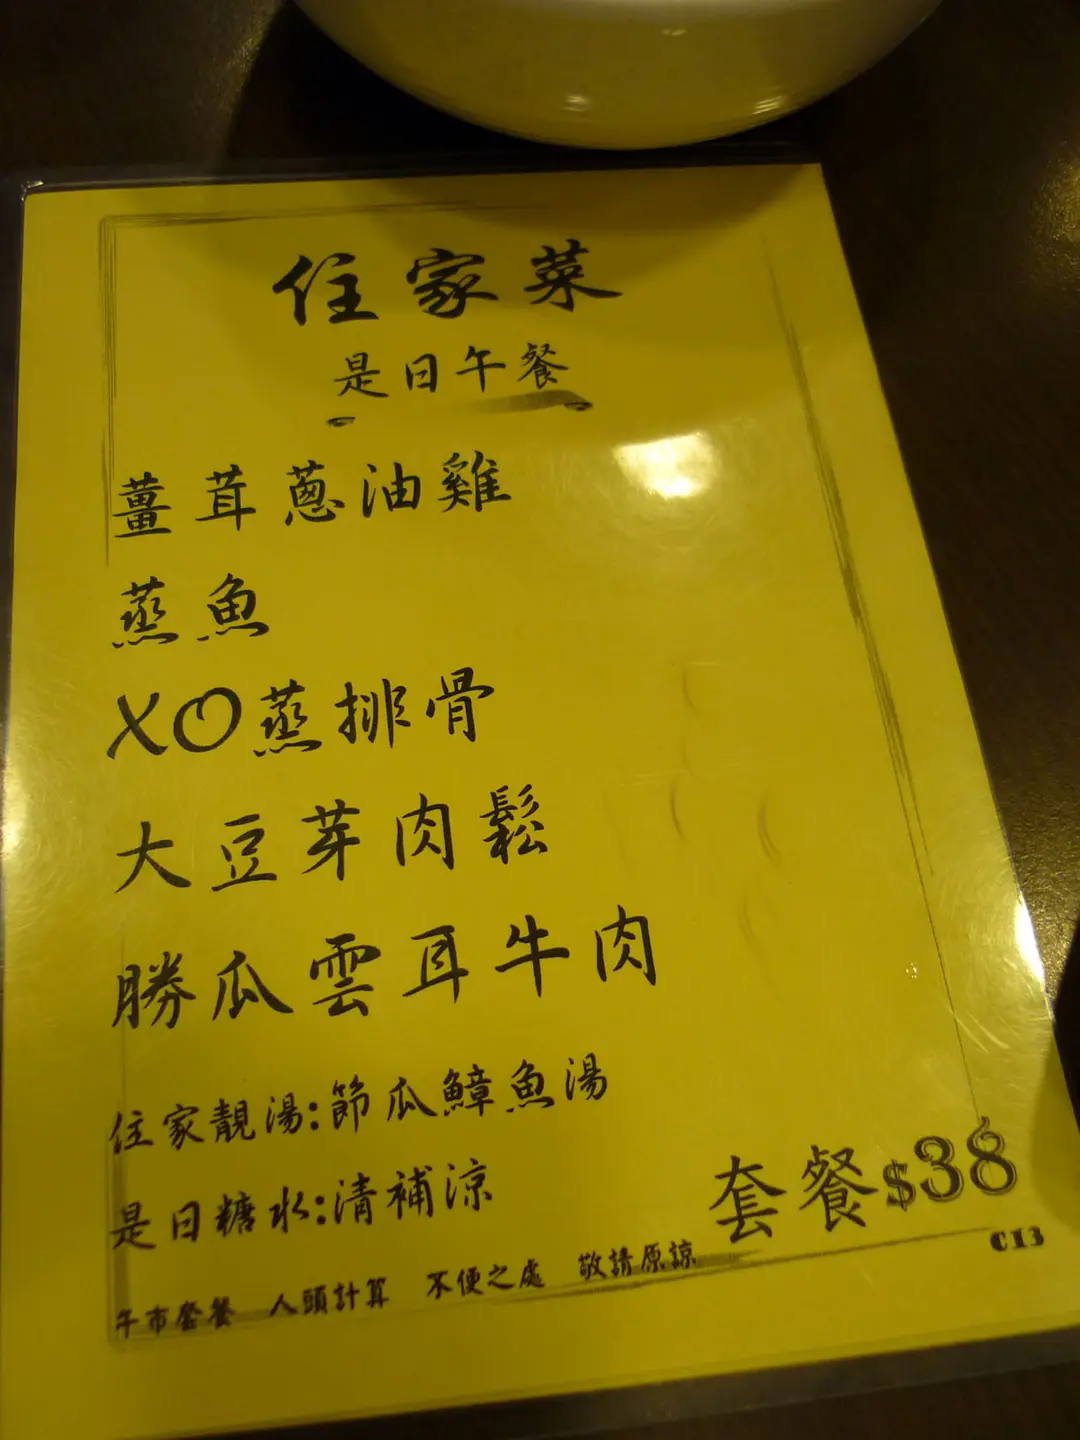 住家菜
是日午餐
薑茸蔥油雞
蒸魚
XO蒸排骨
大豆芽肉鬆
勝瓜雲耳牛肉
住家靚湯:節瓜鱆魚湯
是日糖水:清補涼
套餐$38
C13
午市套餐 人頭計算 不便之處 敬請原諒